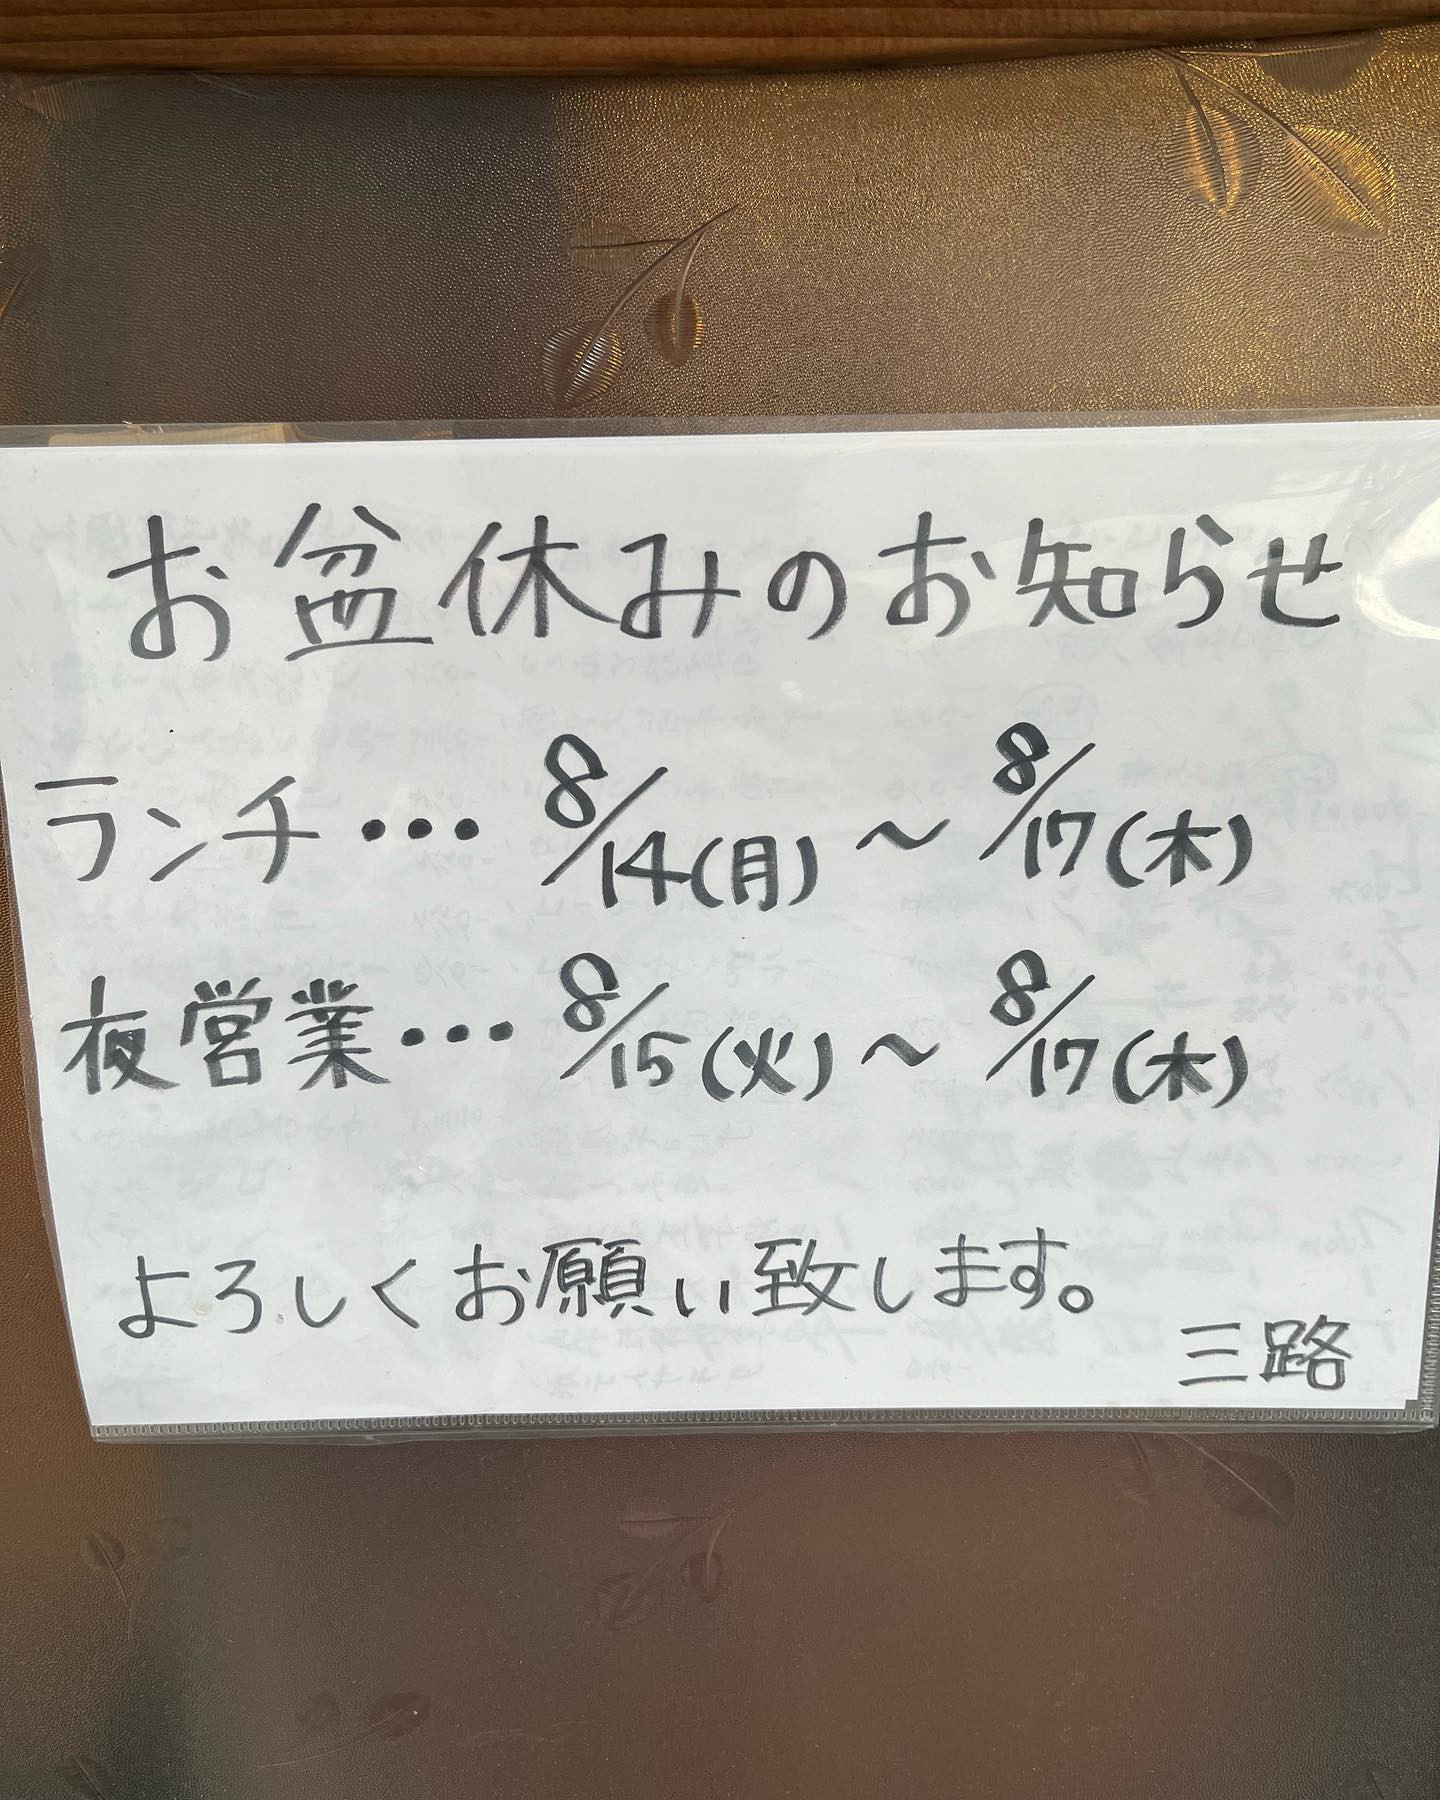 お盆休みのお知らせ
ランチ・・・8/14(月)〜8/17(木)
夜営業・・・8/15(火)〜8/17(木)
よろしくお願い致します。
三路